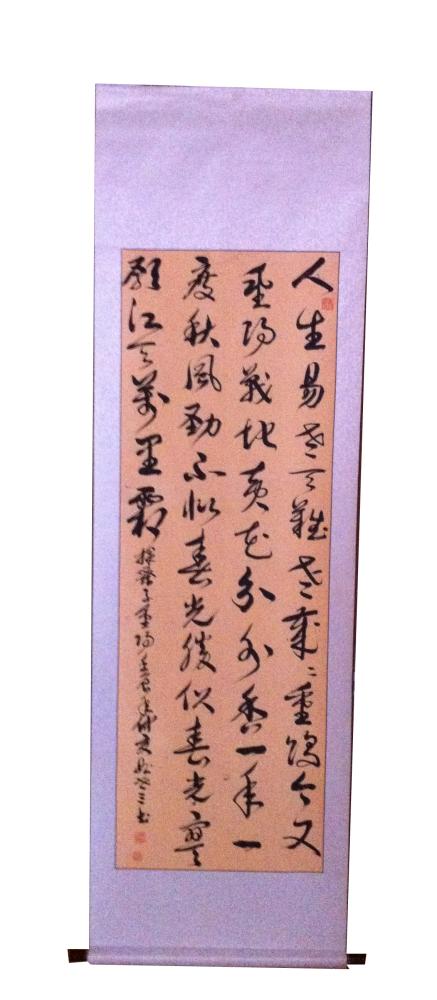 人生易老天難老歲々重陽今又
重陽戰地黃花分外香一年一
度秋風勁不似春光勝似春光寥
廓江天萬里霜
採桑子重陽